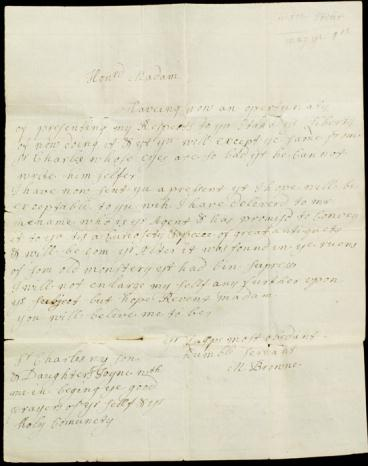 Hon^rd Madam
Haveing now an opertunaty
of presenting my Respects to yu I take ye Liberty
of now doing it & yt yu will except ye same from
Sr Charles whose eyes are so bad yt he Cannot
write him selfe
I have now sent yu a present yt I hope will be
exceptable to yu wch I have deliverd to mr
mename who is yr Agent & has promist to Convey
it to yu tis a Curiosety & peece of great antiquety
& will be com yr Alter it was found in ye ruens
of som old monestery yt had bin supress
I will not enlarge my selfe any further upon
ys subject but hope Revent madam
you will believe me to be
yr Lapps most obediant
humble servant
M. Browne
Sr Charles my son
& Daughter Joyne with
me in beging ye good
prayers of yr selfe & yr
holy Comunety